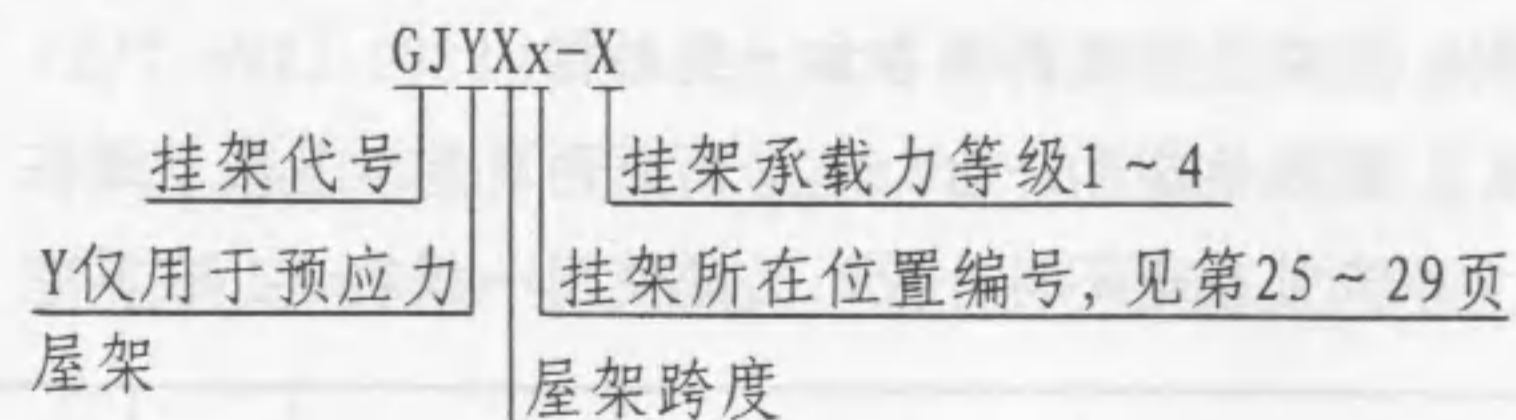 GJYXx-X
挂架代号
挂架承载力等级1~4
Y仅用于预应力
屋架
挂架所在位置编号, 见第25~29页
屋架跨度